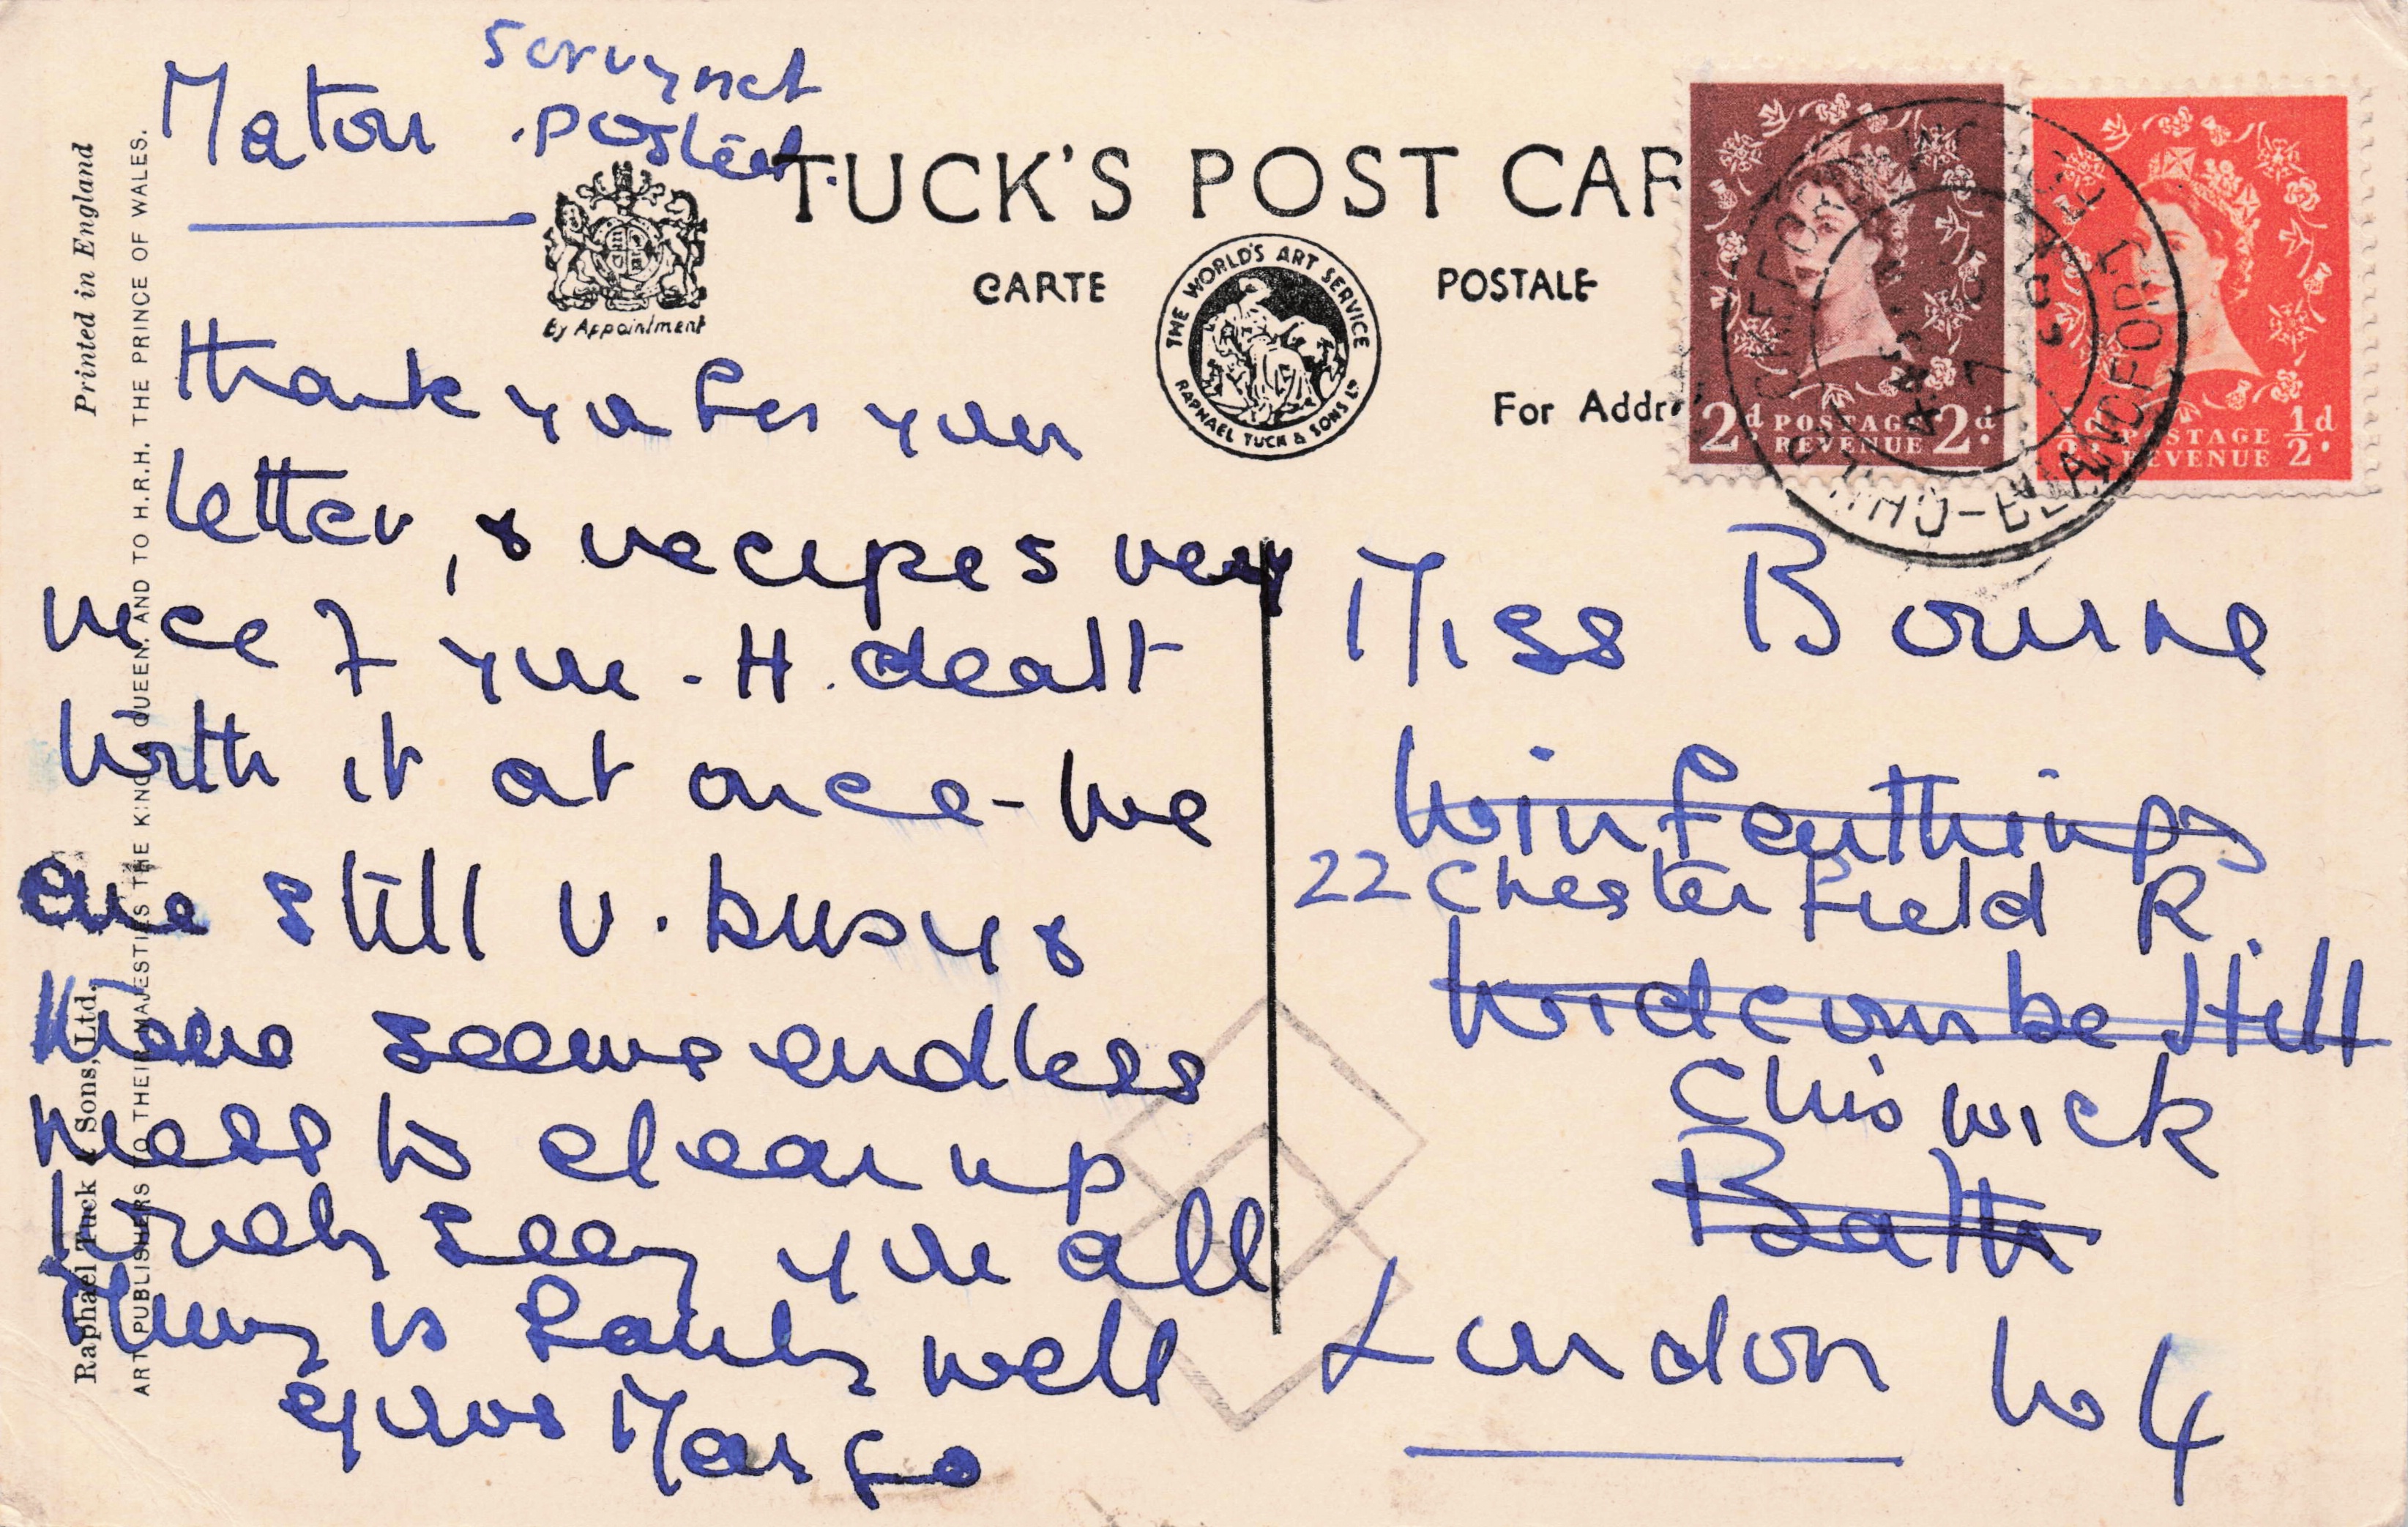 Maton
Sorry not
posted.
TUCK'S POST CAR
CARTE POSTALE
By Appointment
THE WORLD'S ART SERVICE
RAPHAEL TUCK & SONS LD
For Addr
2d POSTAGE 2d.
REVENUE
POSTAGE 1/2d.
REVENUE
CHILD OKEFORD
BLANDFORD
Thank you for your
letter, & recipes very
nice of you. H. dealt
with it at once - we
are still v. busy &
there seems endless
mess to clear up
Lovely seeing you all
is fairly well
yours Margo
Miss Bourne
Winfenthings
22 Chesterfield R.
Widcombe Hill
Chiswick
Bath
London W4
Printed in England
Raphael Tuck & Sons, Ltd.
ART PUBLISHERS TO THEIR MAJESTIES THE KING & QUEEN, AND TO H.R.H. THE PRINCE OF WALES.